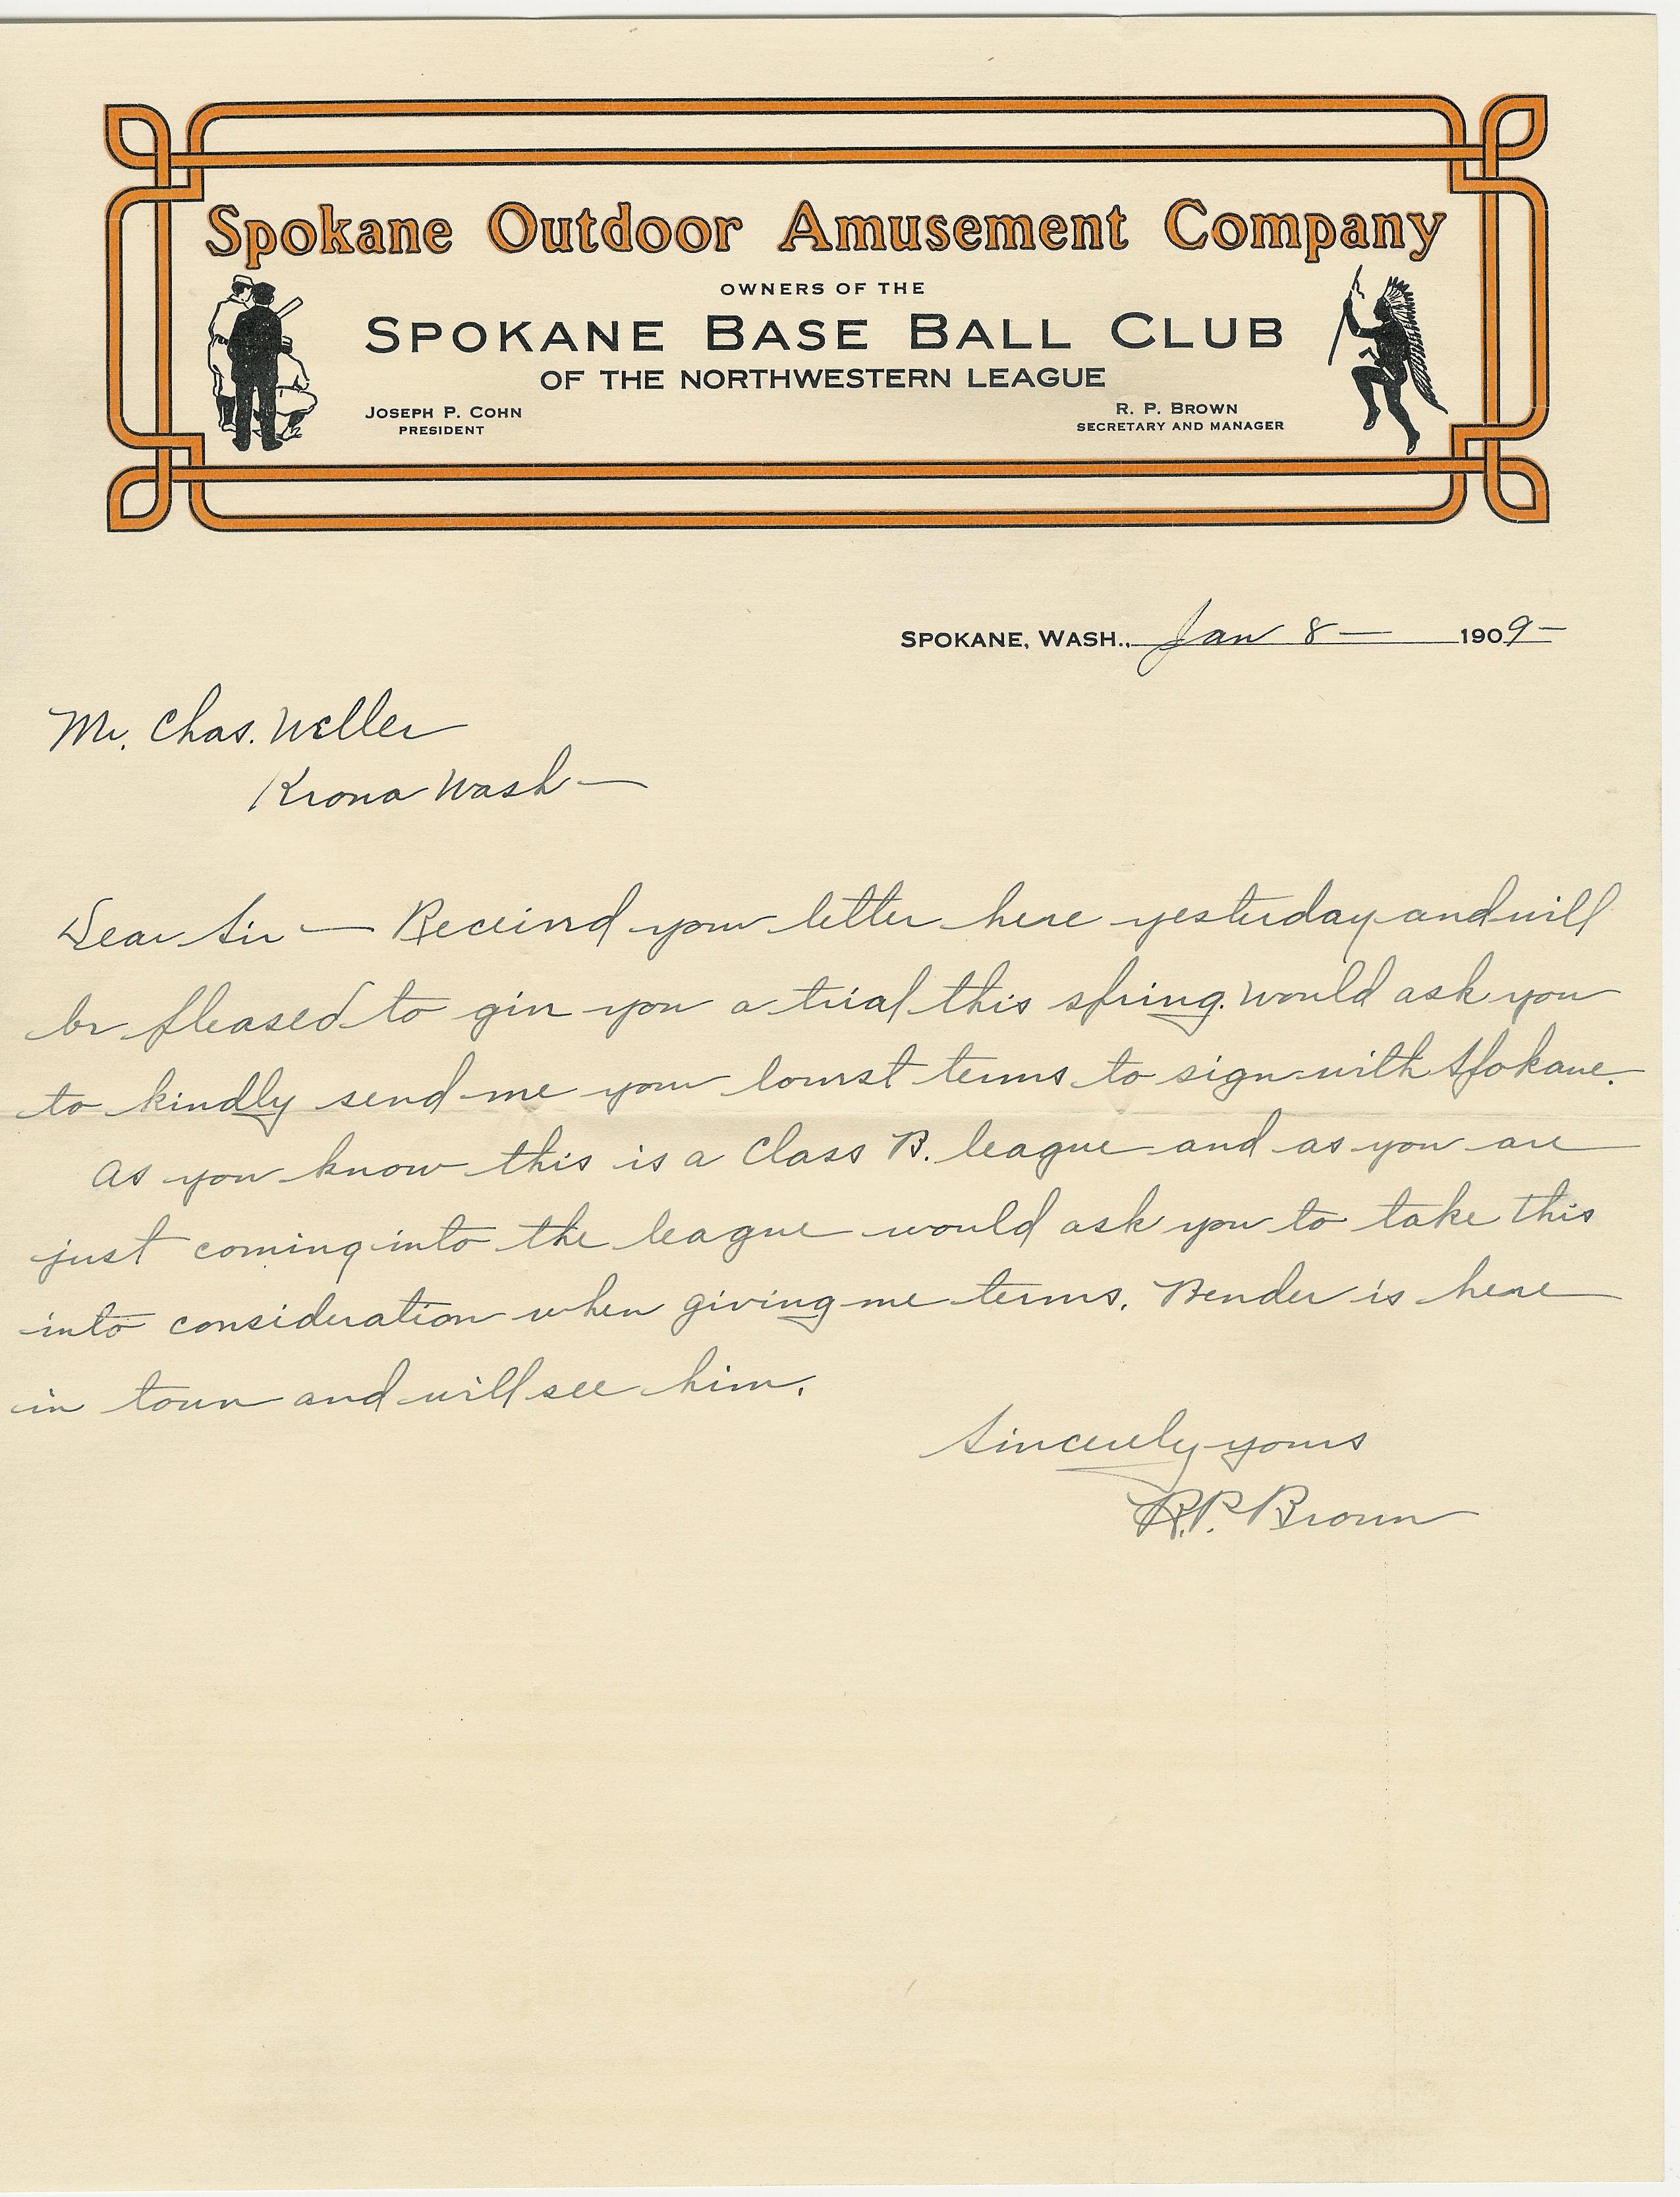 Spokane Outdoor Amusement Company
OWNERS OF THE
SPOKANE BASE BALL CLUB
OF THE NORTHWESTERN LEAGUE
JOSEPH P. COHN
PRESIDENT
R. P. BROWN
SECRETARY AND MANAGER
SPOKANE, WASH., Jan 8 — 1909 —
Mr. Chas. Weller
Kiona Wash —
Dear Sir — Received your letter here yesterday and will
be pleased to give you a trial this spring. Would ask you
to kindly send me your lowest terms to sign with Spokane.
As you know this is a Class B. league and as you are
just coming into the league would ask you to take this
into consideration when giving me terms. Bender is here
in town and will see him.
Sincerely yours
R.P. Brown